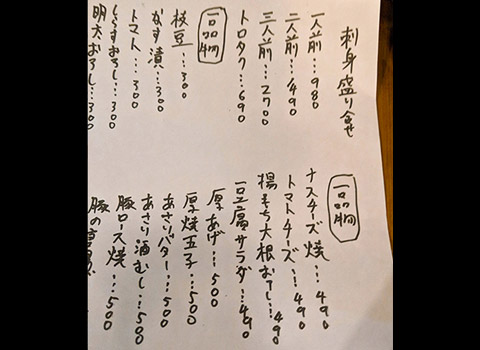 刺身盛り合せ
一人前…980
二人前…490
三人前…2700
トロタク…690
一品物
枝豆…300
なす漬…300
トマト…300
しらすおろし…300
明太おろし…300
一品物
ナスチーズ焼…490
トマトチーズ…490
揚もち大根おろし…490
豆腐サラダ…490
厚あげ…500
厚焼玉子…500
あさりバター…500
あさり酒むし…500
豚ロース焼…500
豚の